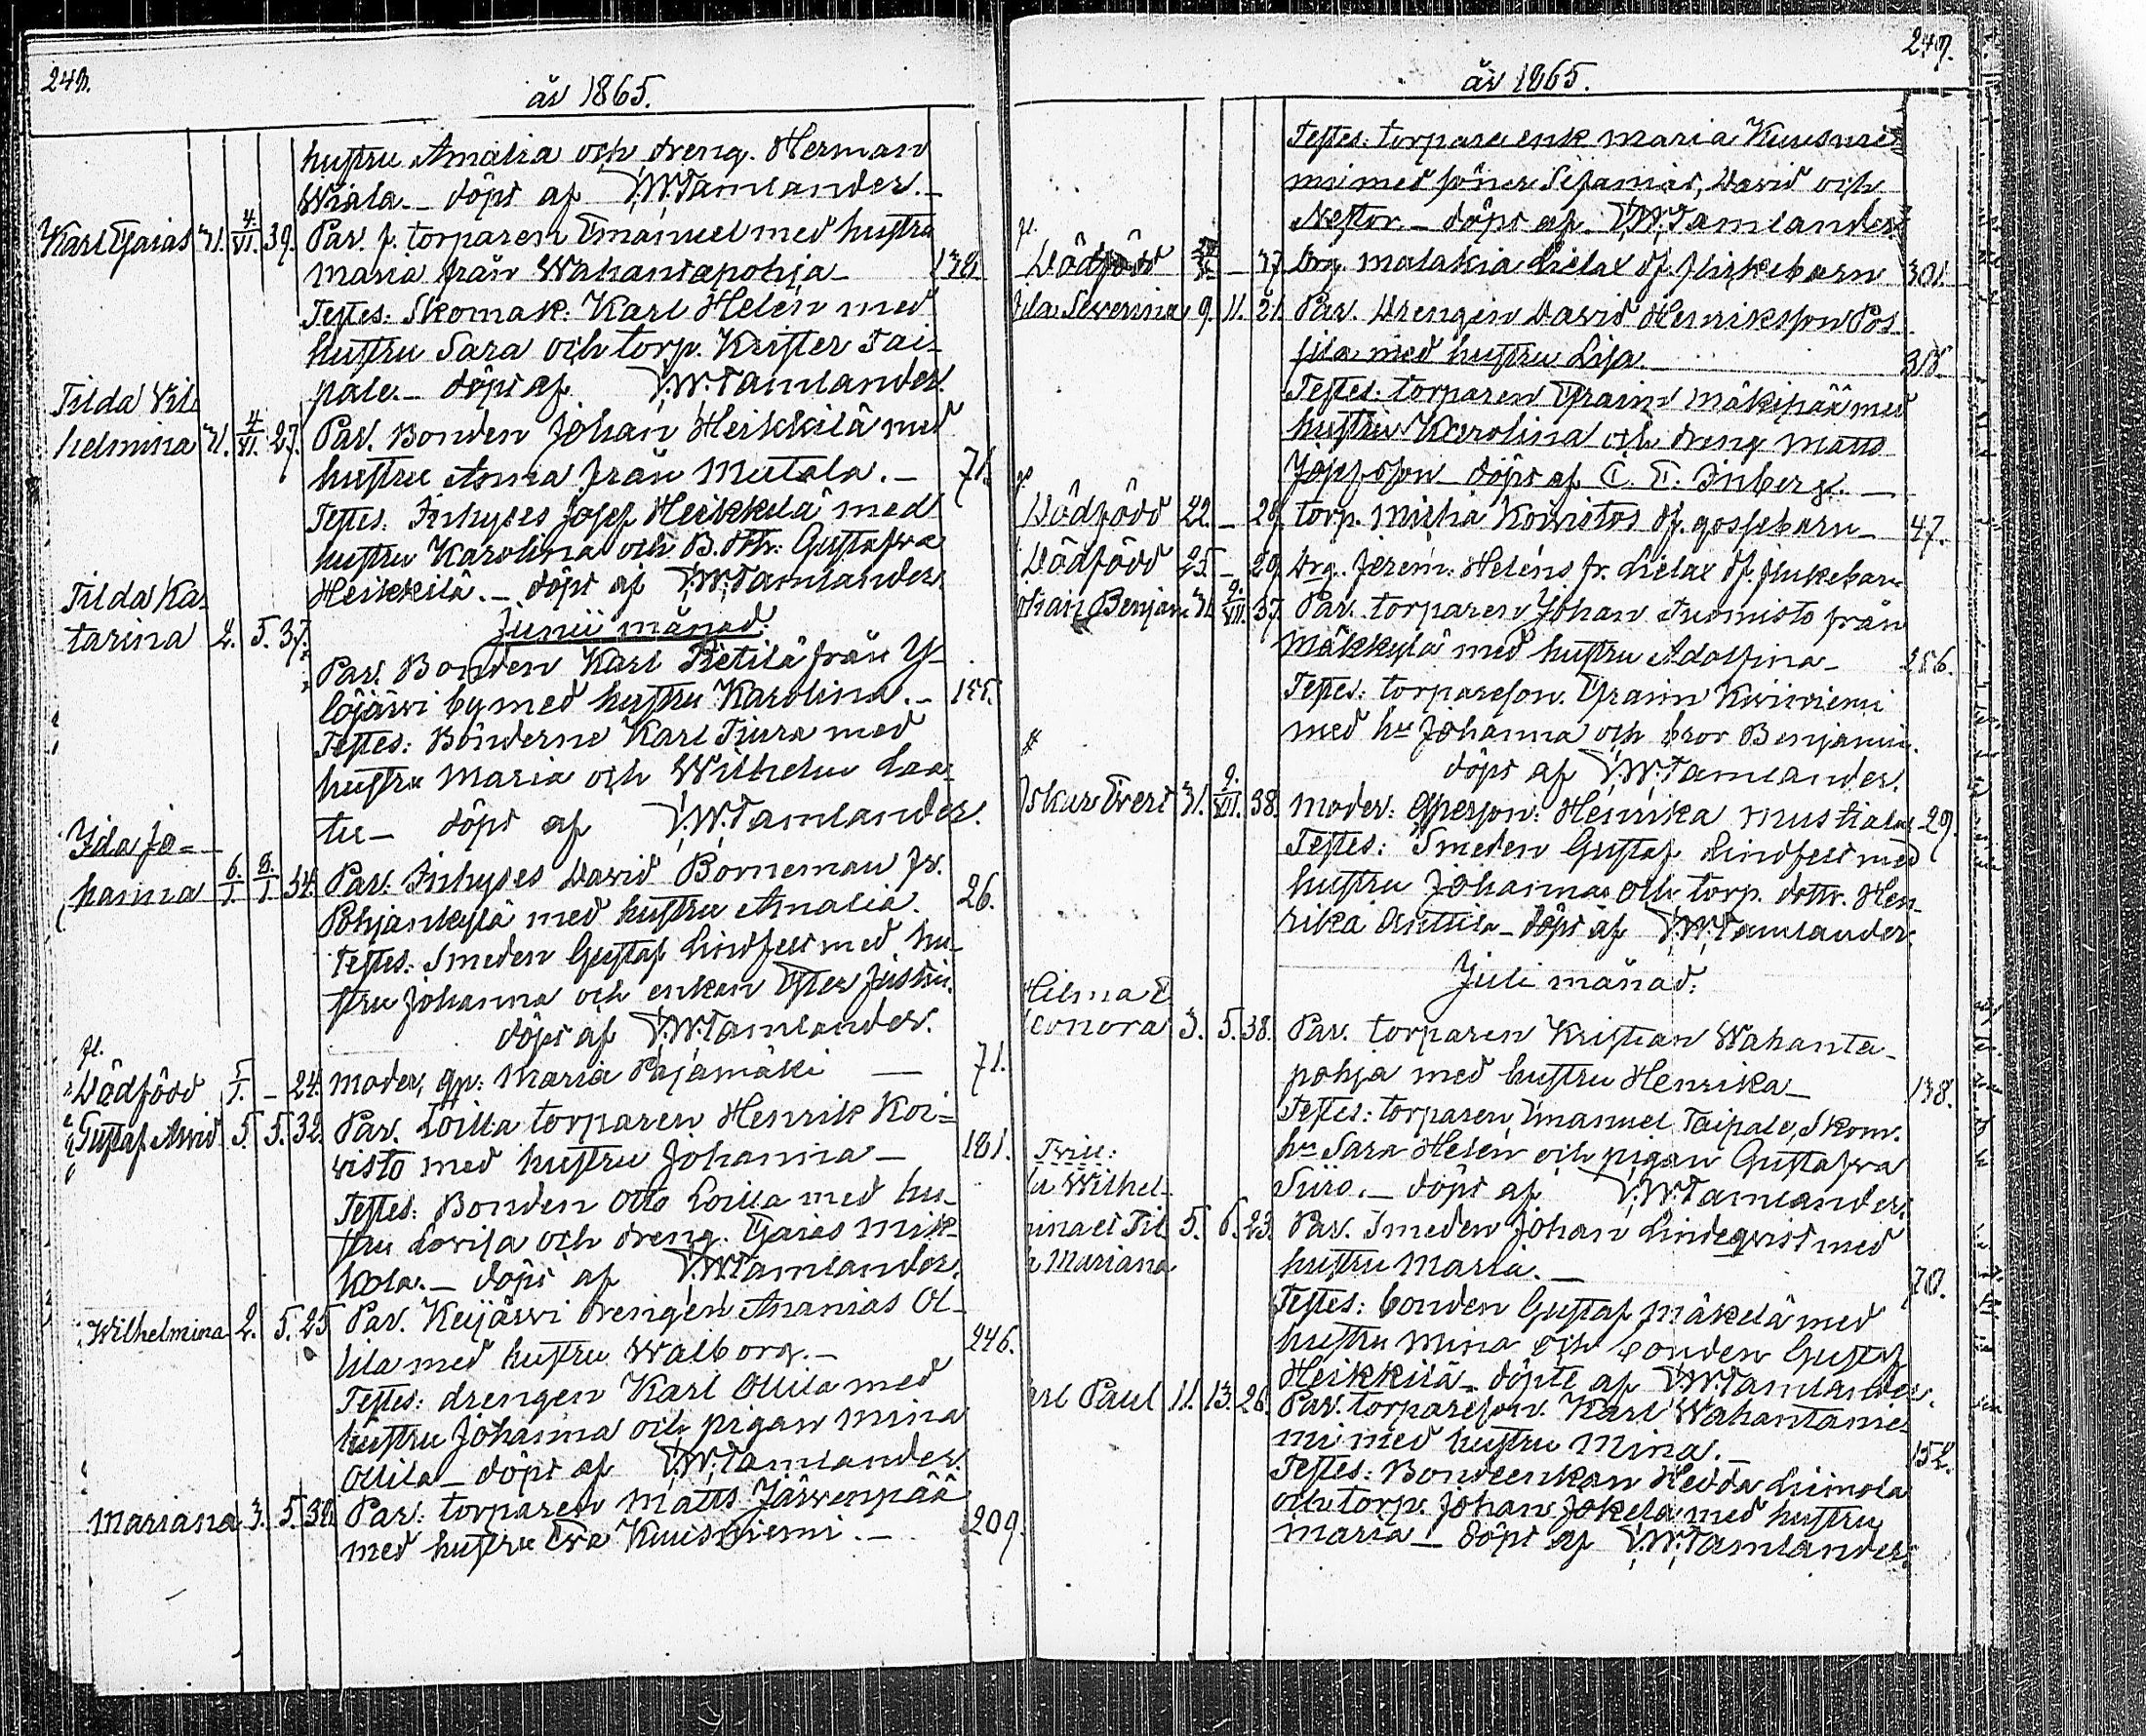 år 1865.
hustru Amalia och dreng. Herman
Wiala. – döpt af V.W. Tamlander. –
Karl Esaias 31. 4/VI. 39. Par. f. torparen Emanuel med hustru
Maria från Wahantapohja – 138
Testes: Skomak. Karl Helén med
hustru Sara och torp. Krister Tai-
pale. – döpt af V.W. Tamlander.
Tilda Vil-
helmina 31. 4/VI. 27. Par. Bonden Johan Heikkilä med
hustru Anna från Mutala. – 71.
Testes: Inhyses Josef Heikkilä med
hustru Karolina och B. dttr: Gustafva
Heikkilä. – döpt af V.W. Tamlander.
Junii månad:
Tilda Ka-
tarina 2. 5. 37. Par. Bonden Karl Pietilä från Y-
löjärvi by med hustru Karolina. – 155.
Testes: Bönderne Karl Tiura med
hustru Maria och Wilhelm Laa-
tu – döpt af V.W. Tamlander.
Ida Jo-
hanna 6/1. 8/1. 34. Par: Inhyses David Borneman fr. 26.
Pohjankylä med hustru Amalia.
Testes: Smeden Gustaf Lindfelt med hu-
stru Johanna och enkan Ester
döpt af V.W. Tamlander.
fl.
Dödfödd 5/1. – 24. moder, qp: Maria Pajamäki — 71.
Gustaf Arvid 5. 5. 32. Par. Loilla torparen Henrik Koi-
visto med hustru Johanna – 181.
Testes: Bonden Otto Loilla med hu-
stru Lovisa och dreng. Esaias Mik-
kola. – döpt af V.W. Tamlander.
Wilhelmina 2. 5. 25. Par. Keijärvi drengen Ananias Ol-
lila med hustru Walborg. – 246.
Testes: drengen Karl Ollila med
hustru Johanna och pigan Mina
Ollila – döpt af V.W. Tamlander.
Mariana 3. 5. 38. Par: torparen Matts Järvenpää
med hustru Eva Kuusniemi. – 209.
247.
år 1865.
Testes: torpare enk Maria Kuusnie-
mi med söner Sefanias, David och
Nestor – döpt af V.W. Tamlander.
fl.
Dödfödd – 37. Drg. Malakia Lielax df. flickebarn 301.
Ida Severina 9. 11. 21. Par. Drengen David Henriksson Pos-
sila med hustru Lisa.
Testes: torparen Efraim Mäkipää med
hustru Karolina och dreng Matts
Josefsson – döpt af C. E. Inberg. —
Dödfödd 22. – 28. torp. Mikha Koivistos df. gossebarn – 47.
Dödfödd 25. – 29. Drg. Jerem: Heléns fr. Lielax df. flickebarn
Johan Benjam. 31. 9/VII. 37. Par. torparen Johan Anomisto från
Mäkkylä med hustru Adolfina – 256.
Testes: torpareson. Efraim Kviniemi
med hu Johanna och bror Benjamin.
döpt af V.W. Tamlander.
Oskar Evert 31. 9/VII. 38. moder: qperson: Henrika Mustiala 29.
Testes: Smeden Gustaf Lindfelt med
hustru Johanna och torp. dottr. Hen-
rika – döpt af V.W. Tamlander.
Juli månad:
Hilma E-
leonora 3. 5. 38. Par. torparen Kristian Wahanta-
pohja med hustru Henrika – 138.
Testes: torparen Emanuel Taipale, Skom.
hu Sara Helén och pigan Gustafva
Siiro. – döpt af V.W. Tamlander.
Tvill:
Wilhel-
mina et Til- 5. 6. 23. Par. Smeden Johan Lindeqvist med
Mariana hustru Maria. – 70.
Testes: bonden Gustaf Mäkelä med
hustru Mina och bonden Gustaf
Heikkilä – döpte af V.W. Tamlander.
Karl Paul 11. 13. 26. Par. torpareson. Karl Wahantanie-
mi med hustru Mina. – 152.
Testes: Bondeenkan Hedda Liimola
och torp. Johan Jokela med hustru
Maria – döpt af V.W. Tamlander.